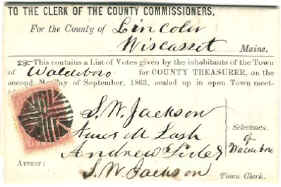 TO THE CLERK OF THE COUNTY COMMISSIONERS,
For the County of Lincoln
Wiscasset Maine.
This contains a List of Votes given by the inhabitants of the Town
of Waldoboro for COUNTY TREASURER, on the
second Monday of September, 1863, sealed up in open Town meet-
S. W. Jackson
Amos M. Lash
Andrew
Selectmen
of
Waldoboro
ATTEST:
S. W. Jackson
Town Clerk.